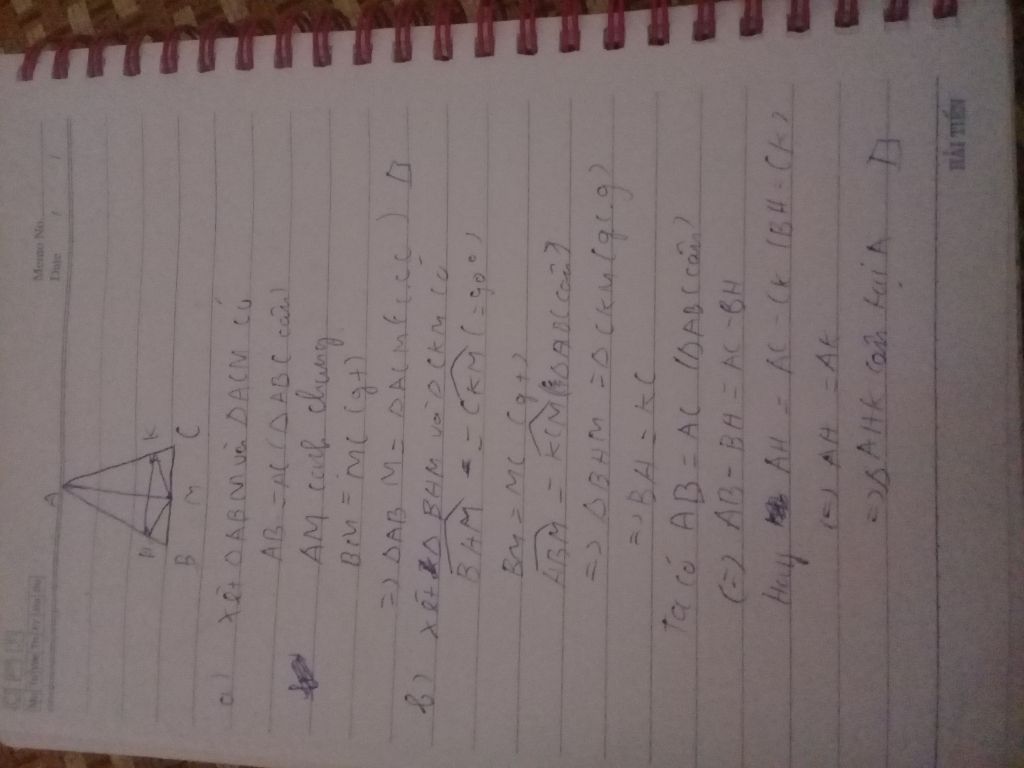 Memo No.
Date / /
A
H K
B M C
a) Xét ΔABM và ΔACM có
AB = AC (ΔABC cân)
AM cạnh chung
BM = MC (gt)
=> ΔABM = ΔACM (c.c.c) □
b) Xét Δ BHM và Δ CKM có
BHM = CKM (= 90°)
BM = MC (gt)
ABM = KCM (ΔABC cân)
=> Δ BHM = Δ CKM (g.c.g)
=> BH = KC
Ta có AB = AC (ΔABC cân)
(=) AB - BH = AC - BH
Hay AH = AC - CK (BH = CK)
(=) AH = AK
=> Δ AHK cân tại A □
HẢI TIẾN